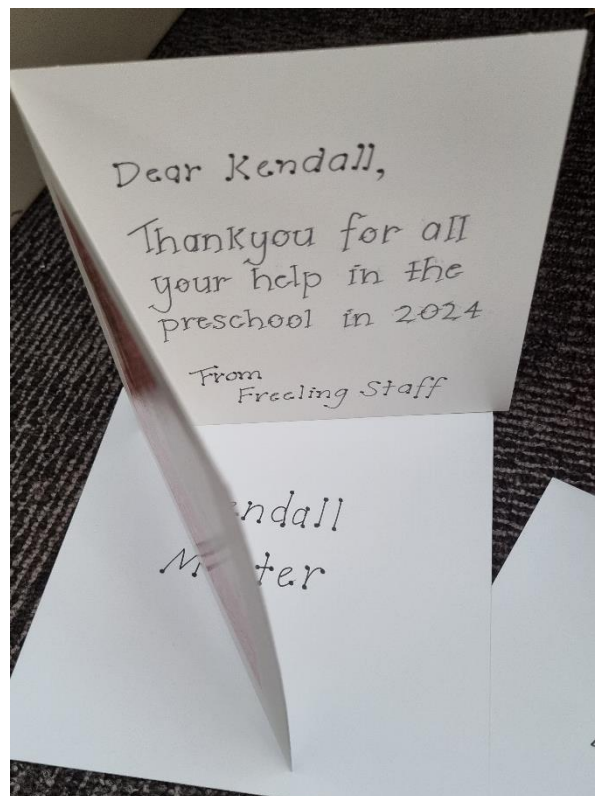 Dear Kendall,
Thankyou for all
your help in the
preschool in 2024
From
Freeling Staff